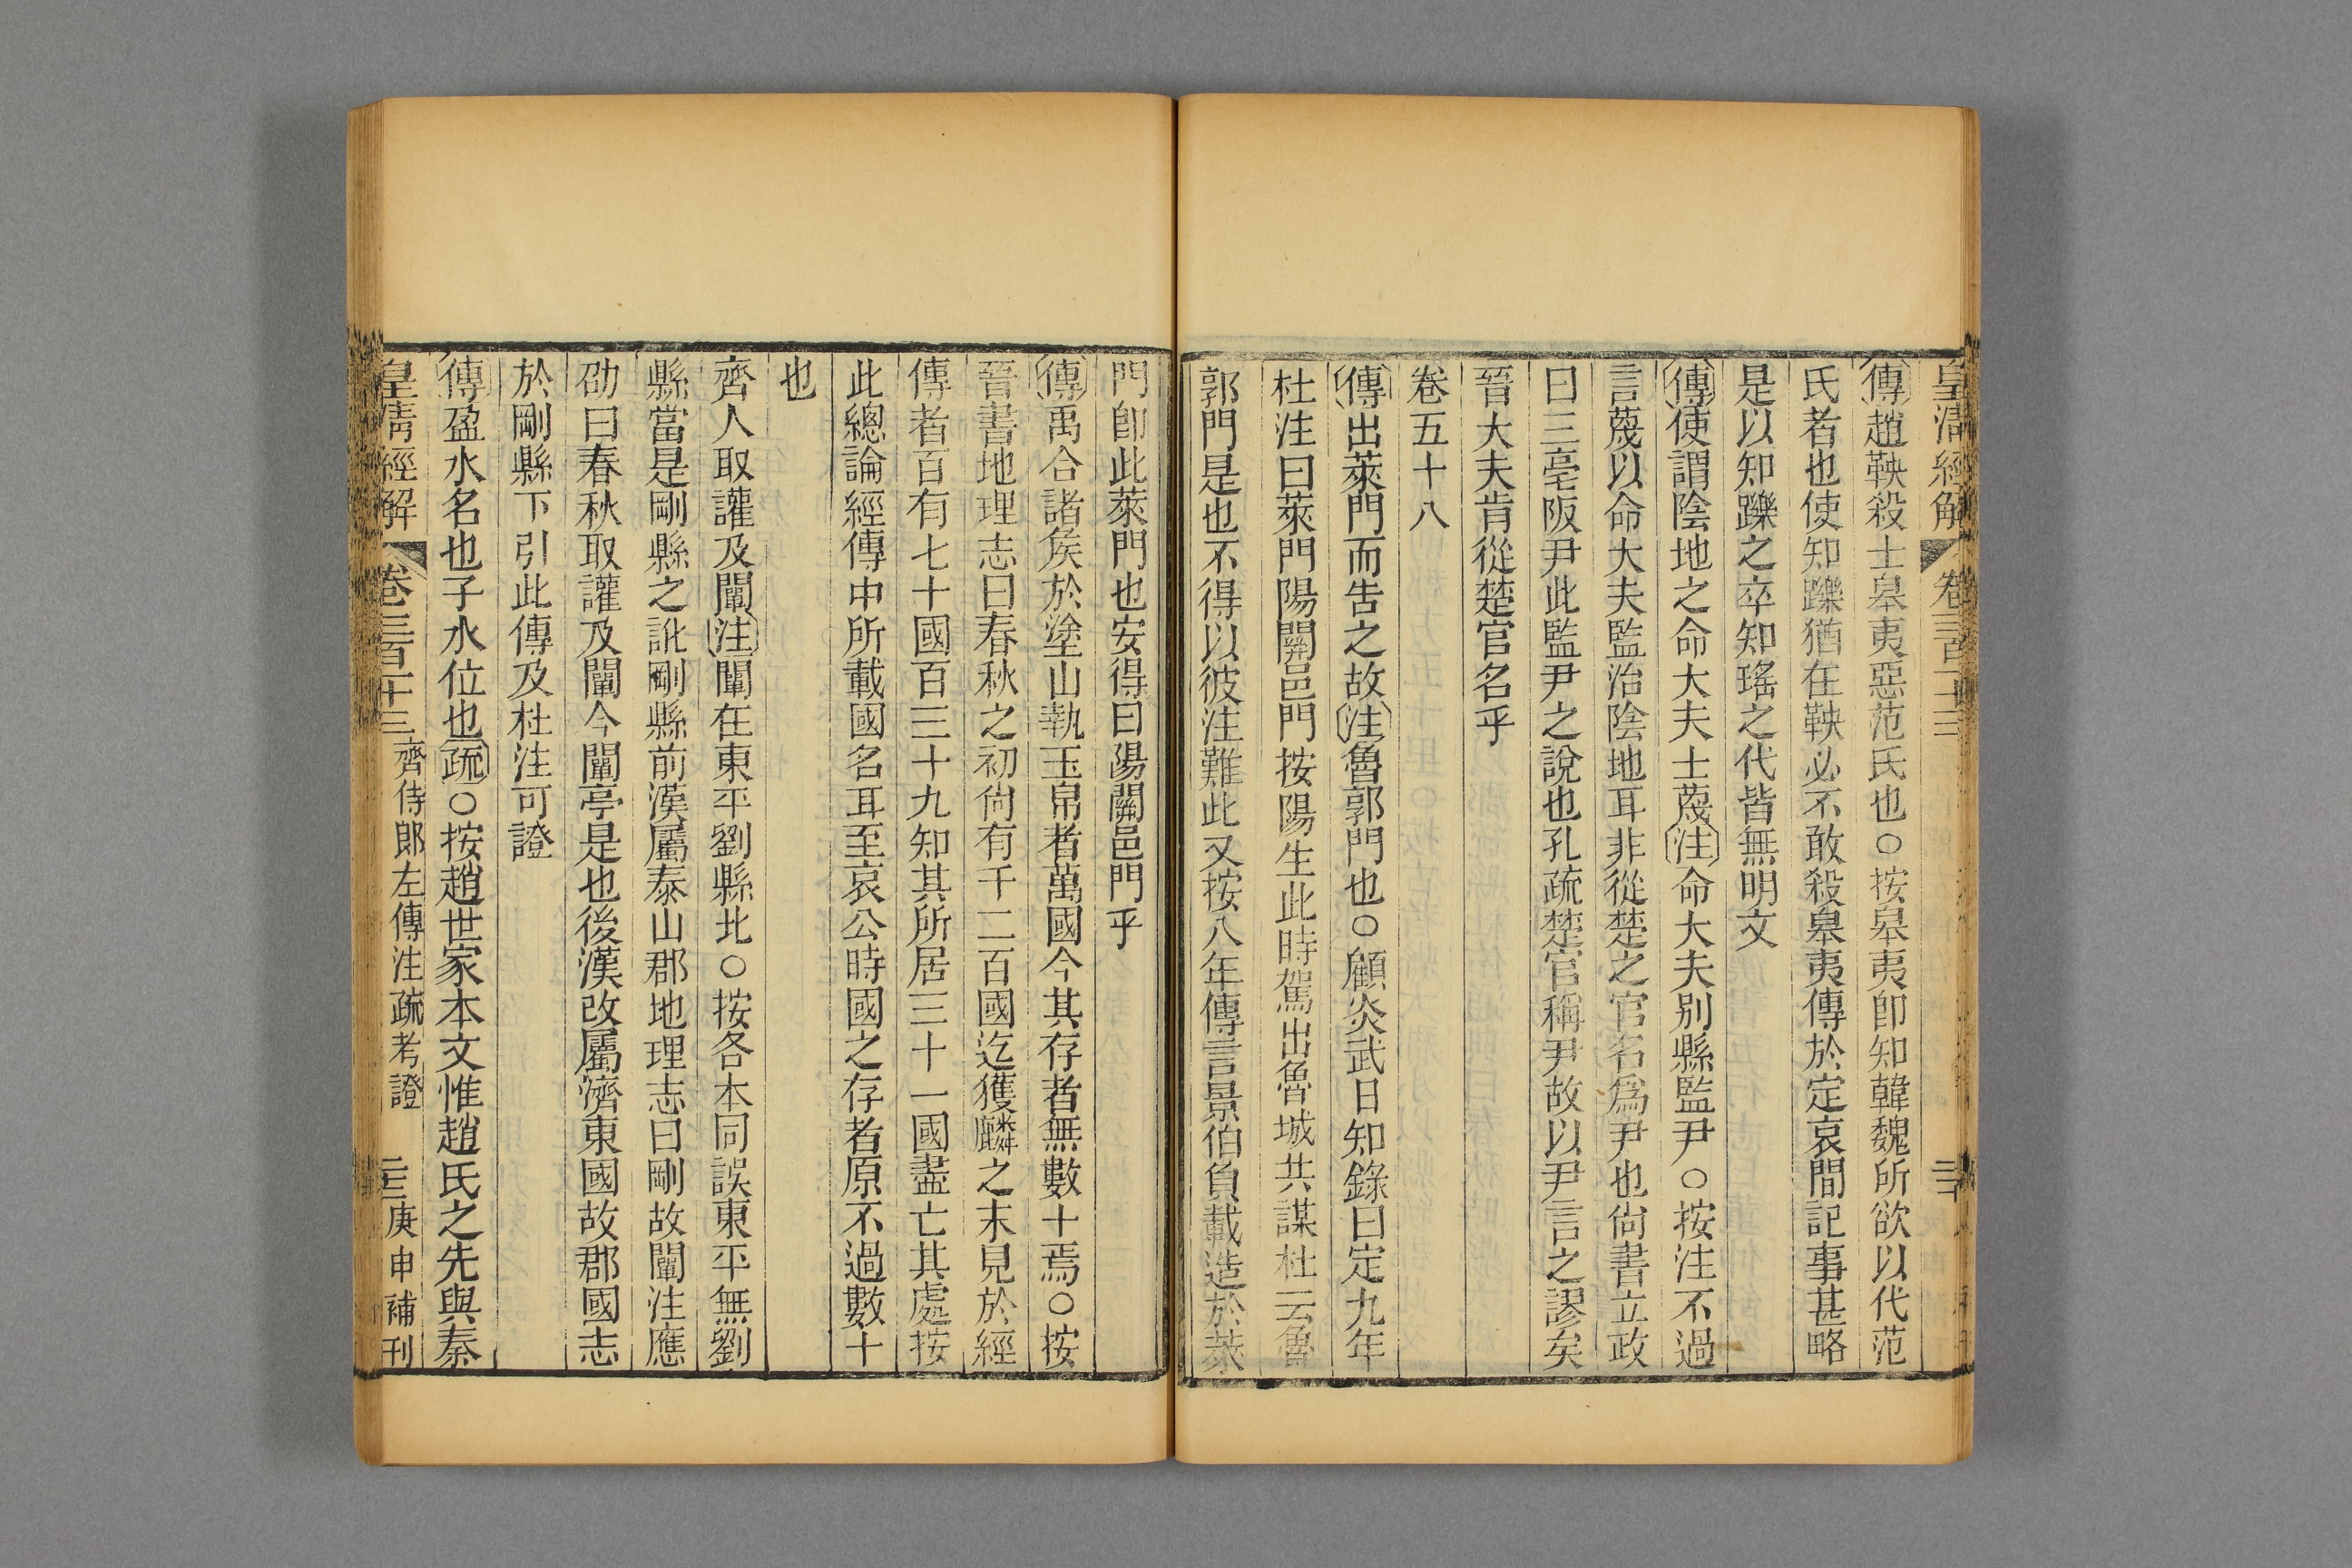 皇清經解 卷三百十三
傳趙鞅殺士皋夷惡范氏也○按皋夷卽知韓魏所欲以代范
氏者也使知躒猶在鞅必不敢殺皋夷傳於定哀間記事甚略
是以知躒之卒知瑤之代皆無明文
傳使謂陰地之命大夫士蔑注命大夫别縣監尹○按注不過
言蔑以命大夫監治陰地耳非從楚之官名爲尹也尙書立政
曰三亳阪尹此監尹之說也孔疏楚官稱尹故以尹言之謬矣
晉大夫肯從楚官名乎
卷五十八
傳出萊門而告之故注魯郭門也○顧炎武日知錄曰定九年
杜注曰萊門陽關邑門按陽生此時駕出魯城共謀杜云魯
郭門是也不得以彼注難此又按八年傳言景伯負載造於萊
門卽此萊門也安得曰陽關邑門乎
傳禹合諸侯於塗山執玉帛者萬國今其存者無數十焉○按
晉書地理志曰春秋之初尙有千二百國迄獲麟之末見於經
傳者百有七十國百三十九知其所居三十一國盡亡其處按
此總論經傳中所載國名耳至哀公時國之存者原不過數十
也
齊人取讙及闡注闡在東平劉縣北○按各本同誤東平無劉
縣當是剛縣之訛剛縣前漢屬泰山郡地理志曰剛故闡注應
劭曰春秋取讙及闡今闡亭是也後漢改屬濟東國故郡國志
於剛縣下引此傳及杜注可證
傳盈水名也子水位也疏○按趙世家本文惟趙氏之先與秦
皇清經解 卷三百十三 齊侍郎左傳注疏考證 庚申補刊